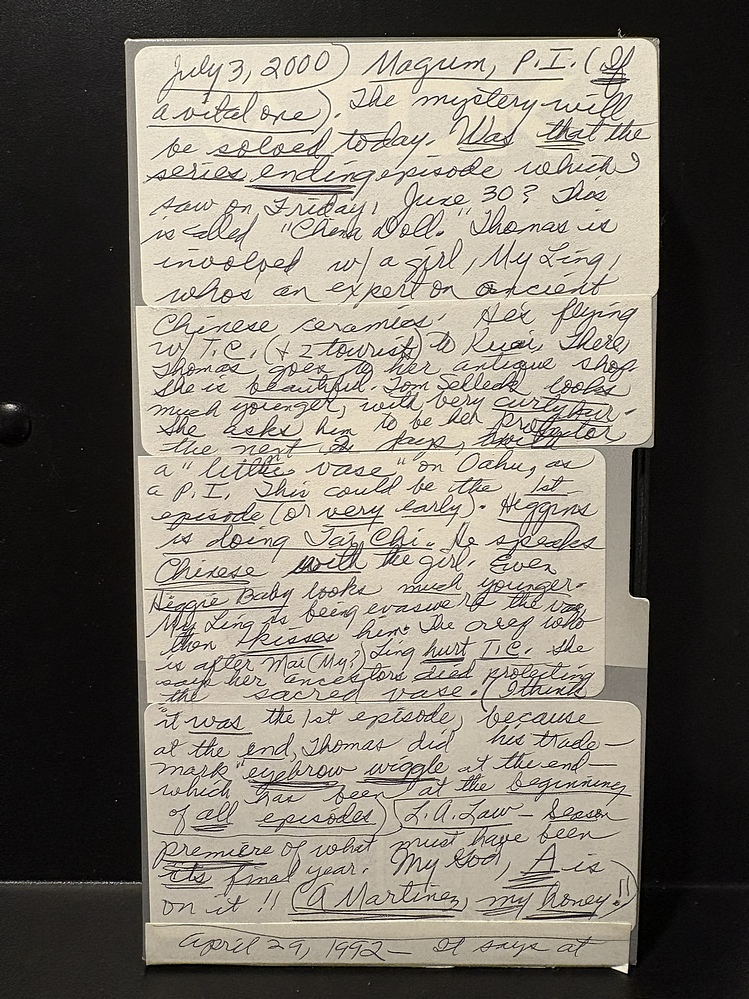 July 3, 2000) Magum, P.I. (If
a vital one). The mystery will
be solved today. Was that the
series ending episode which I
saw on Friday, June 30? This
is called "China Doll." Thomas is
involved w/ a girl, My Ling,
whos an expert on ancient
Chinese ceramics. He's flying
w/ T.C. (+ 2 tourists) to Kuai. There,
Thomas goes to her antique shop.
She is beautiful. Tom Selleck looks
much younger, with very curly hair.
She asks him to be her protector
the next 2 days, with
a "little vase" on Oahu, as
a P.I. This could be the 1st
episode (or very early). Higgins
is doing Tai Chi. He speaks
Chinese with the girl. Even
Higgie Baby looks much younger.
My Ling is being evasive the vase,
then kisses him. The creep who
is after Mai (My?) Ling hurt T.C. She
says her ancestors died protecting
the sacred vase. (I think
it was the 1st episode, because
at the end, Thomas did his trade-
mark "eyebrow wiggle at the end—
which has been at the beginning
of all episodes) L.A. Law – Season
premiere of what must have been
its final year. My God, A is
on it!! (A Martinez, my honey!!)
April 29, 1992 – It says at